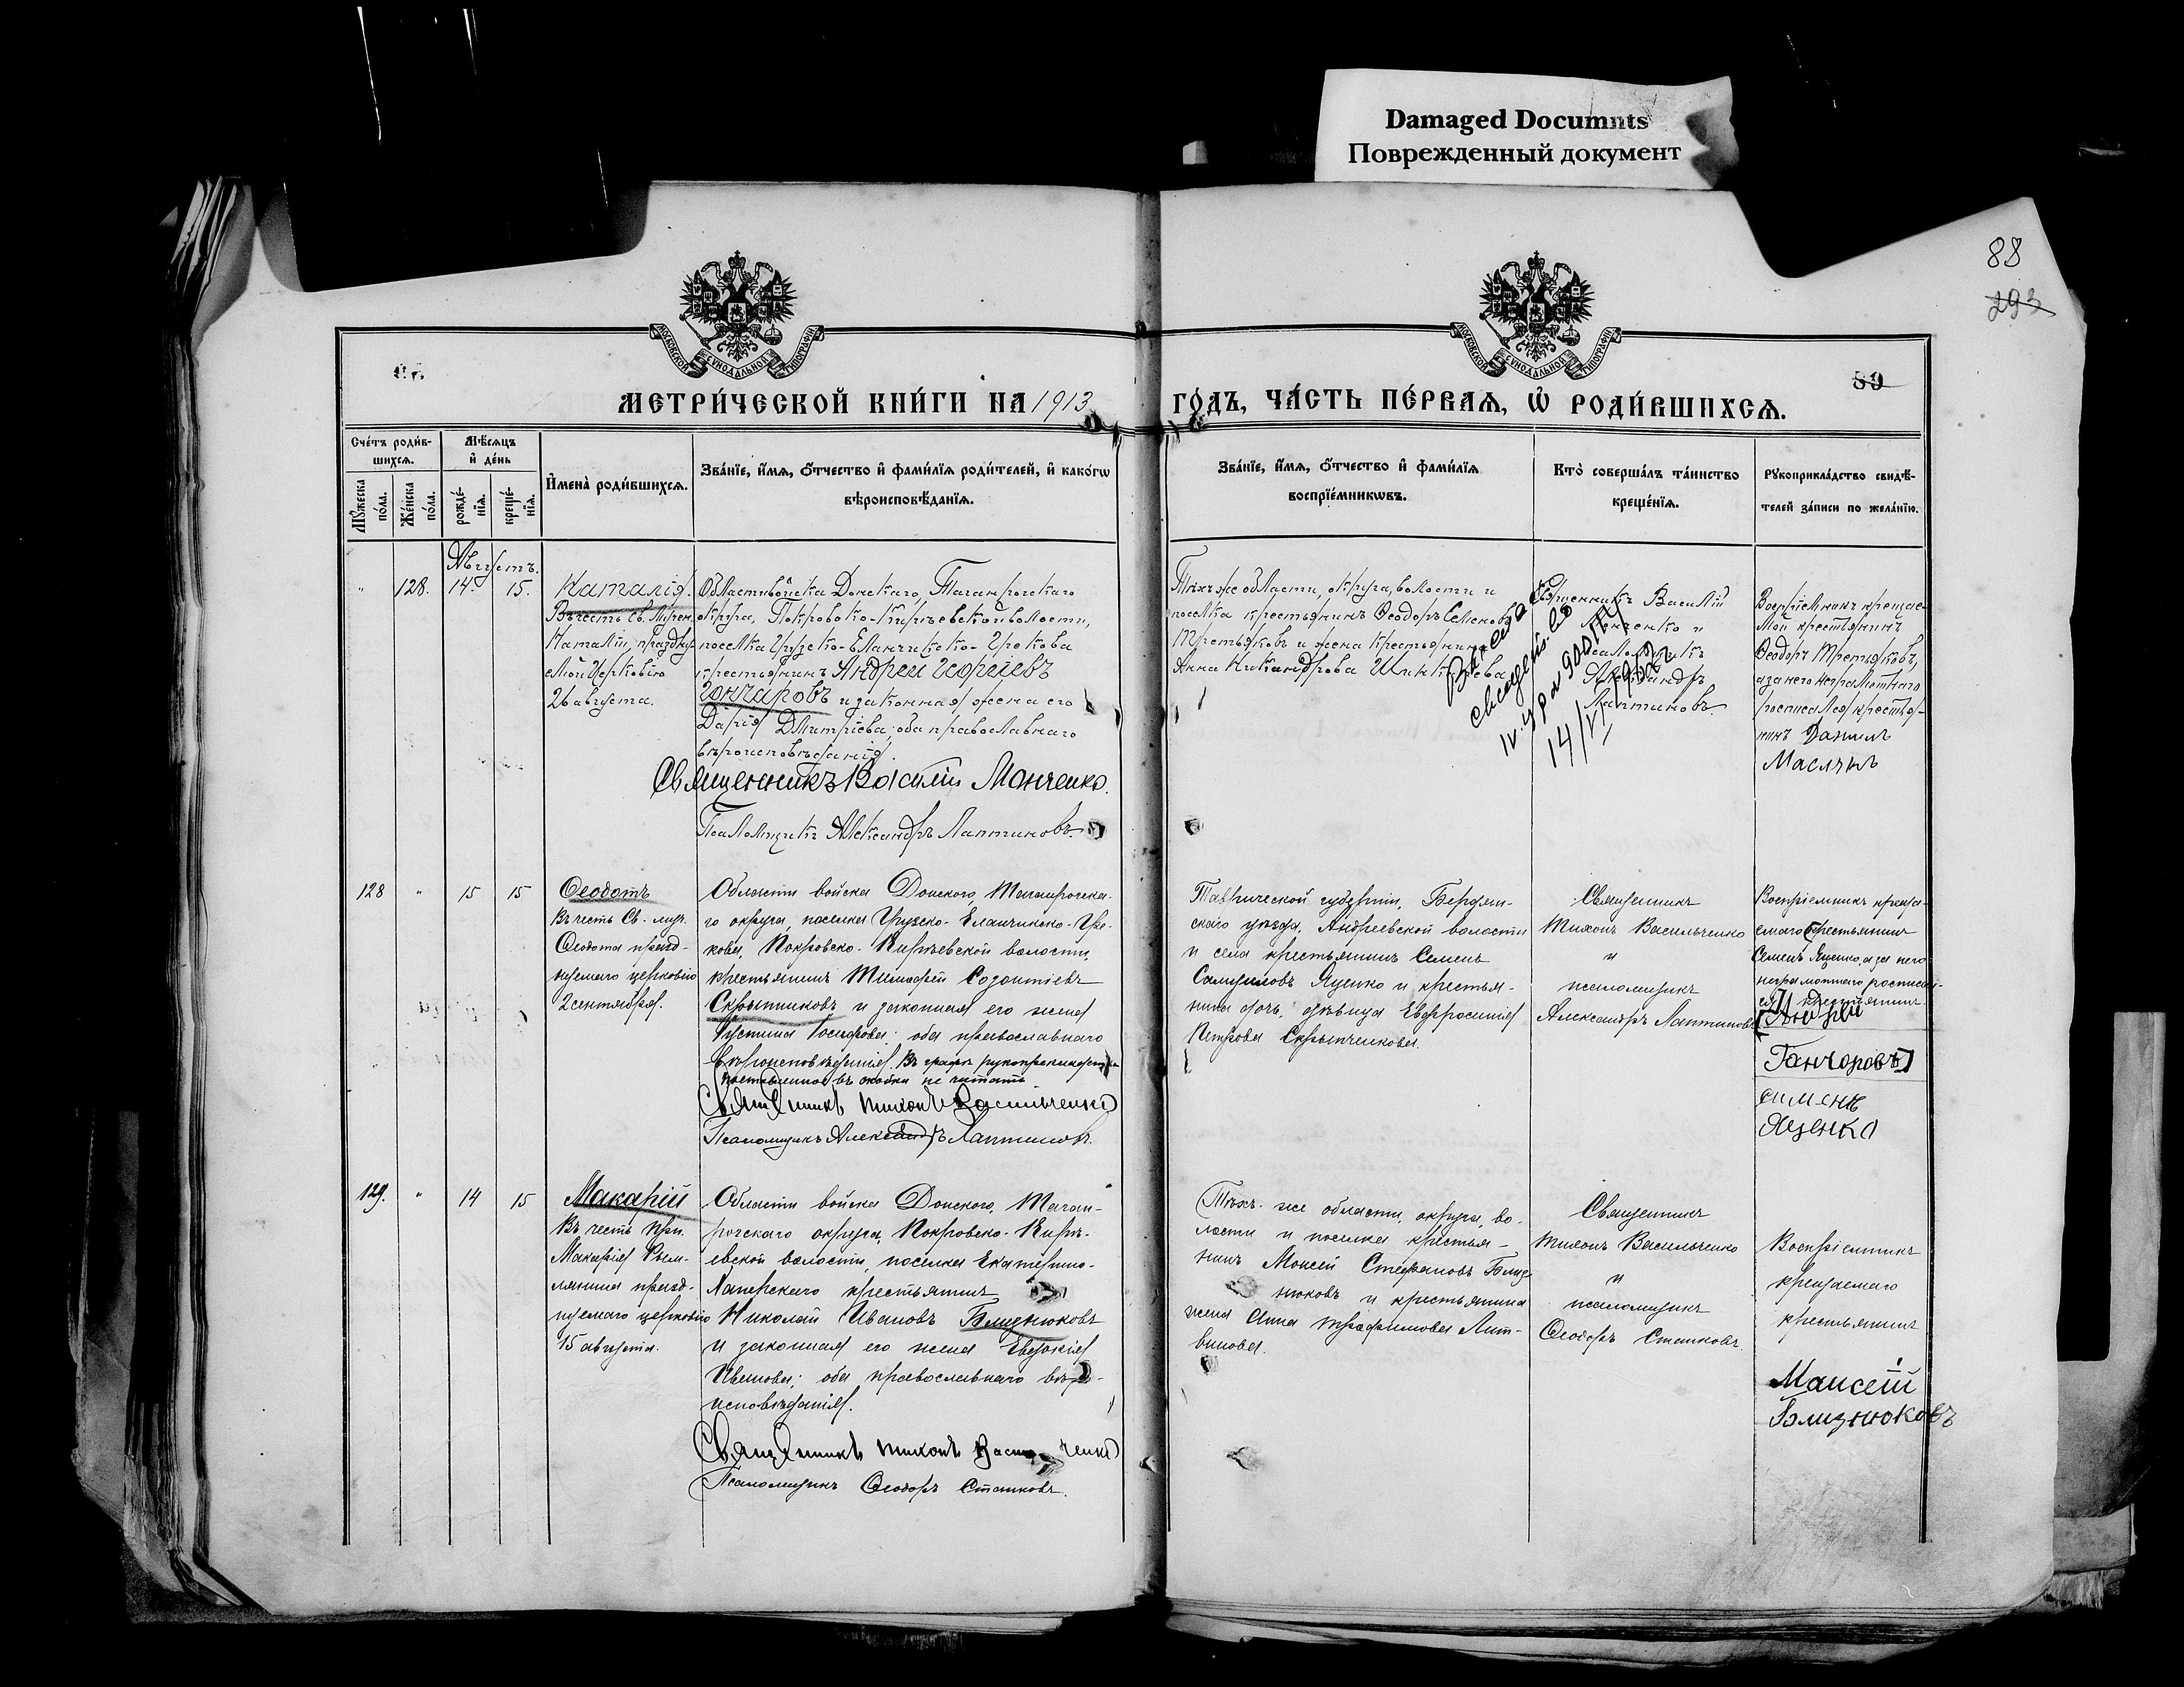 Damaged Documnts
Поврежденный документ
88
293
89
МОСКОВСКОЙ СѴНОДАЛЬНОЙ ТИПОГРАФІИ
МОСКОВСКОЙ СѴНОДАЛЬНОЙ ТИПОГРАФІИ
МЕТРИ́ЧЕСКОЙ КНИ́ГИ НА 1913 ГО́ДЪ, ЧА́СТЬ ПЕ́РВАѦ, Ѡ҆ РОДИ́ВШИХСѦ.
Сче́тъ роди́в-
шихсѧ.
Мꙋ́жеска
по́ла.
Же́нска
по́ла.
Мѣ́сѧцъ
и҆ де́нь
рожде́-
нїѧ.
креще́-
нїѧ.
И҆мена̀ роди́вшихсѧ.
Зва́нїе, и҆́мѧ, ѻ҆́тчество и҆ фами́лїѧ роди́телей, и҆ како́гѡ
вѣроисповѣ́данїѧ.
Зва́нїе, и҆́мѧ, ѻ҆́тчество и҆ фами́лїѧ
воспрїе́мникѡвъ.
Кто̀ соверша́лъ та́инство
креще́нїѧ.
Рꙋкоприкла́дство свидѣ́-
телей за́писи по жела́нїю.
Августъ.
" 128. 14. 15.
Наталія.
Въ честь св. мучен.
Наталіи, празднуе-
мой Церковію
26 августа.
Области войска Донского, Таганрогскаго
округа, Покровско-Кирѣевской волости,
поселка Грузско-Еланчикско-Грекова
крестьянинъ Андрей Георгіевъ
Гончаровъ и законная жена его
Дарія Дмитріева; оба православнаго
вѣроисповѣданія.
Священникъ Василій Манченко.
Псаломщикъ Александръ Лаптиновъ.
Тѣхъ же области, округа, волости и
поселка крестьянинъ Ѳеодоръ Семеновъ
Третьяковъ и жена крестьянина
Анна Никандрова
Священникъ Василій
Манченко и
Псаломщикъ
Александръ
Лаптиновъ.
14/VI 1932
Воспріемникъ крещае-
мой крестьянинъ
Ѳеодоръ Третьяковъ,
а за него неграмотнаго
росписался крестья-
нинъ Данилъ
128 " 15 15
Ѳеодотъ
Въ честь Св. муч.
Ѳеодота празд-
нуемаго церковію
2 сентября.
Области войска Донского, Таганрогска-
го округа, поселка Грузско-Еланчикско-Гре-
кова, Покровско-Кирѣевской волости,
крестьянинъ Тимофей Созонтіевъ
Скрытниковъ и законная его жена
Іустина Іосифова; оба православнаго
вѣроисповѣданія. Въ графѣ рукоприкладства
поставленное въ скобки не читать
Священникъ Тихонъ Васильченко
Псаломщикъ Александръ Лаптиновъ.
Таврической губерніи, Бердян-
скаго уѣзда, Андреевской волости
и села крестьянинъ Семенъ
Самуиловъ Яценко и крестья-
нина дочь, дѣвица Евфросинія
Петрова
Священникъ
Тихонъ Васильченко
и
псаломщикъ
Александръ Лаптиновъ
Воспріемникъ креща-
емаго крестьянинъ
Семенъ Яценко, а за него
неграмотнаго росписал-
ся крестьянинъ
Андрей
Ганчоровъ
Сименъ
Яценко
129. " 14 15
Макарій
Въ честь прп.
Макарія Рим-
лянина празд-
нуемаго церковію
15 августа.
Области войска Донского, Таган-
рогскаго округа, Покровско-Кирѣ-
евской волости, поселка Екатерино-
Хаперскаго крестьянинъ
Николай Ивановъ Близнюковъ
и законная его жена Евдокія
Иванова; оба православнаго вѣро-
исповѣданія.
Священникъ Тихонъ Васильченко
Псаломщикъ Ѳеодоръ Станковъ.
Тѣхъ-же области, округа, во-
лости и поселка крестья-
нинъ Моисей Стефановъ Близ-
нюковъ и крестьянина
жена Анна Трофимова Лит-
винова.
Священникъ
Тихонъ Васильченко
и
псаломщикъ
Ѳеодоръ Станковъ.
Воспріемникъ
крещаемаго
крестьянинъ
Маисей
Близнюковъ